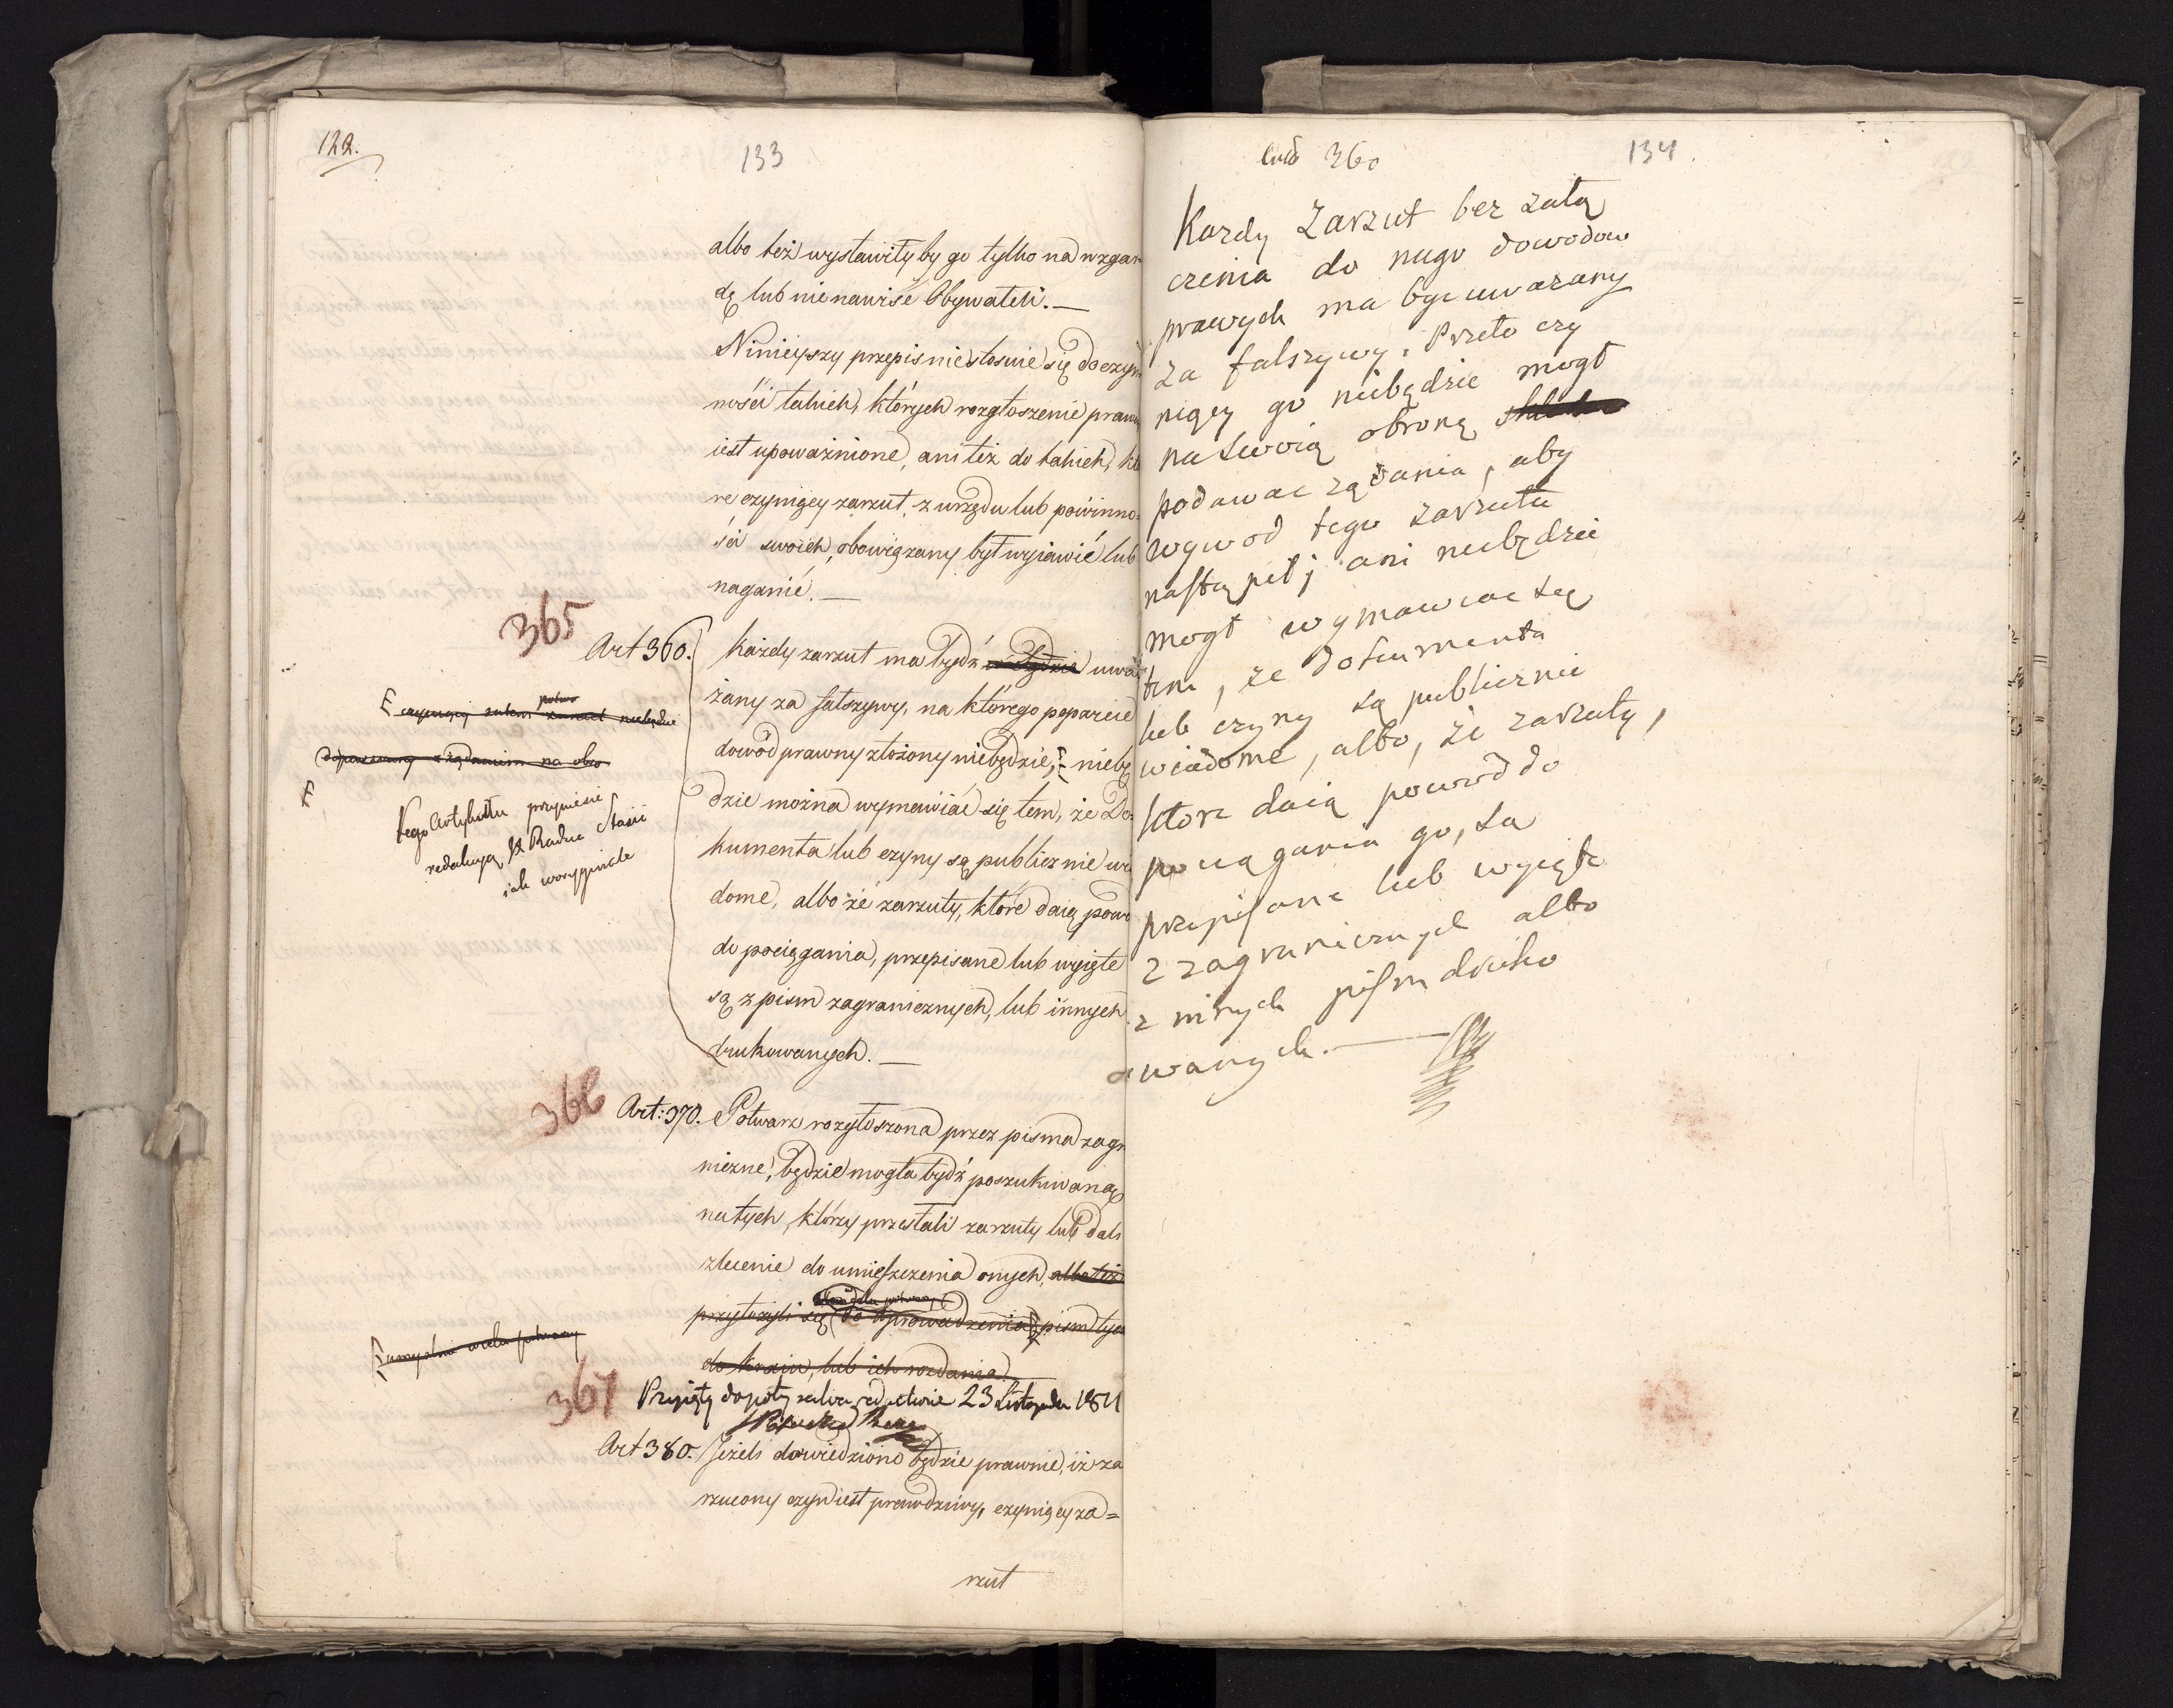 122.
133
albo też wystawiły by go tylko na wzgar-
dę lub nienawiść Obywateli. —
Ninieyszy przepis nie stosuie się do czyn
ności takich, których rozgłoszenie praw
iest upoważnione, ani też do takich, kto
re czyniący zarzut, z urzędu lub powinno-
ści swoich, obowiązany był wyiawić lub
naganić. —
365
Art 360. Każdy zarzut ma bydź uwa
żany za fałszywy, na którego poparcie
dowód prawny złożony niebędzie, niebę
dzie można wymawiać się tem, że Do-
kumenta lub czyny są publicznie wia
dome, albo że zarzuty, które daią powo
do pociągania, przepisane lub wyięte
są z pism zagranicznych, lub innych
drukowanych. —
czyniący zatem zarzut niebędzie
dopuszczony z żądaniem na obro
tego Artykułu przyniesie
redakcyą JP. Radca Stanu
366
Art: 370. Potwarz rozgłoszona przez pisma zagr
niczne, będzie mogła bydź poszukiwana
na tych, którzy przesłali zarzuty lub dali
zlecenie do umieszczenia onych, albo też
przyłożyli się do wprowadzenia pism tych
do kraiu, lub ich rozdania.
umyślnie w celu potwarzy
Przyięty dopóty salva redactione 23 Listopada 1821
367
Art 380. Jeżeli dowiedziono będzie prawnie, iż za
rzucony czyn iest prawdziwy, czyniący za=
rzut
134
360
Kazdy Zarzut bez załą
czenia do niego dowodow
prawych ma byc uwazany
za falszywy. Przeto czy
niący go niebędzie mogł
na swoią obronę
podawac ządania, aby
wywod tego zarzutu
nastąpił; ani niebędzie
mogł wymawiac się
tem, że dokumenta
lub czyny są publicznie
wiadome, albo, że zarzuty,
ktore daią powod do
pociągania go, są
przepisane lub wyięte
z zagranicznych albo
z innych pism druko
wanych. —